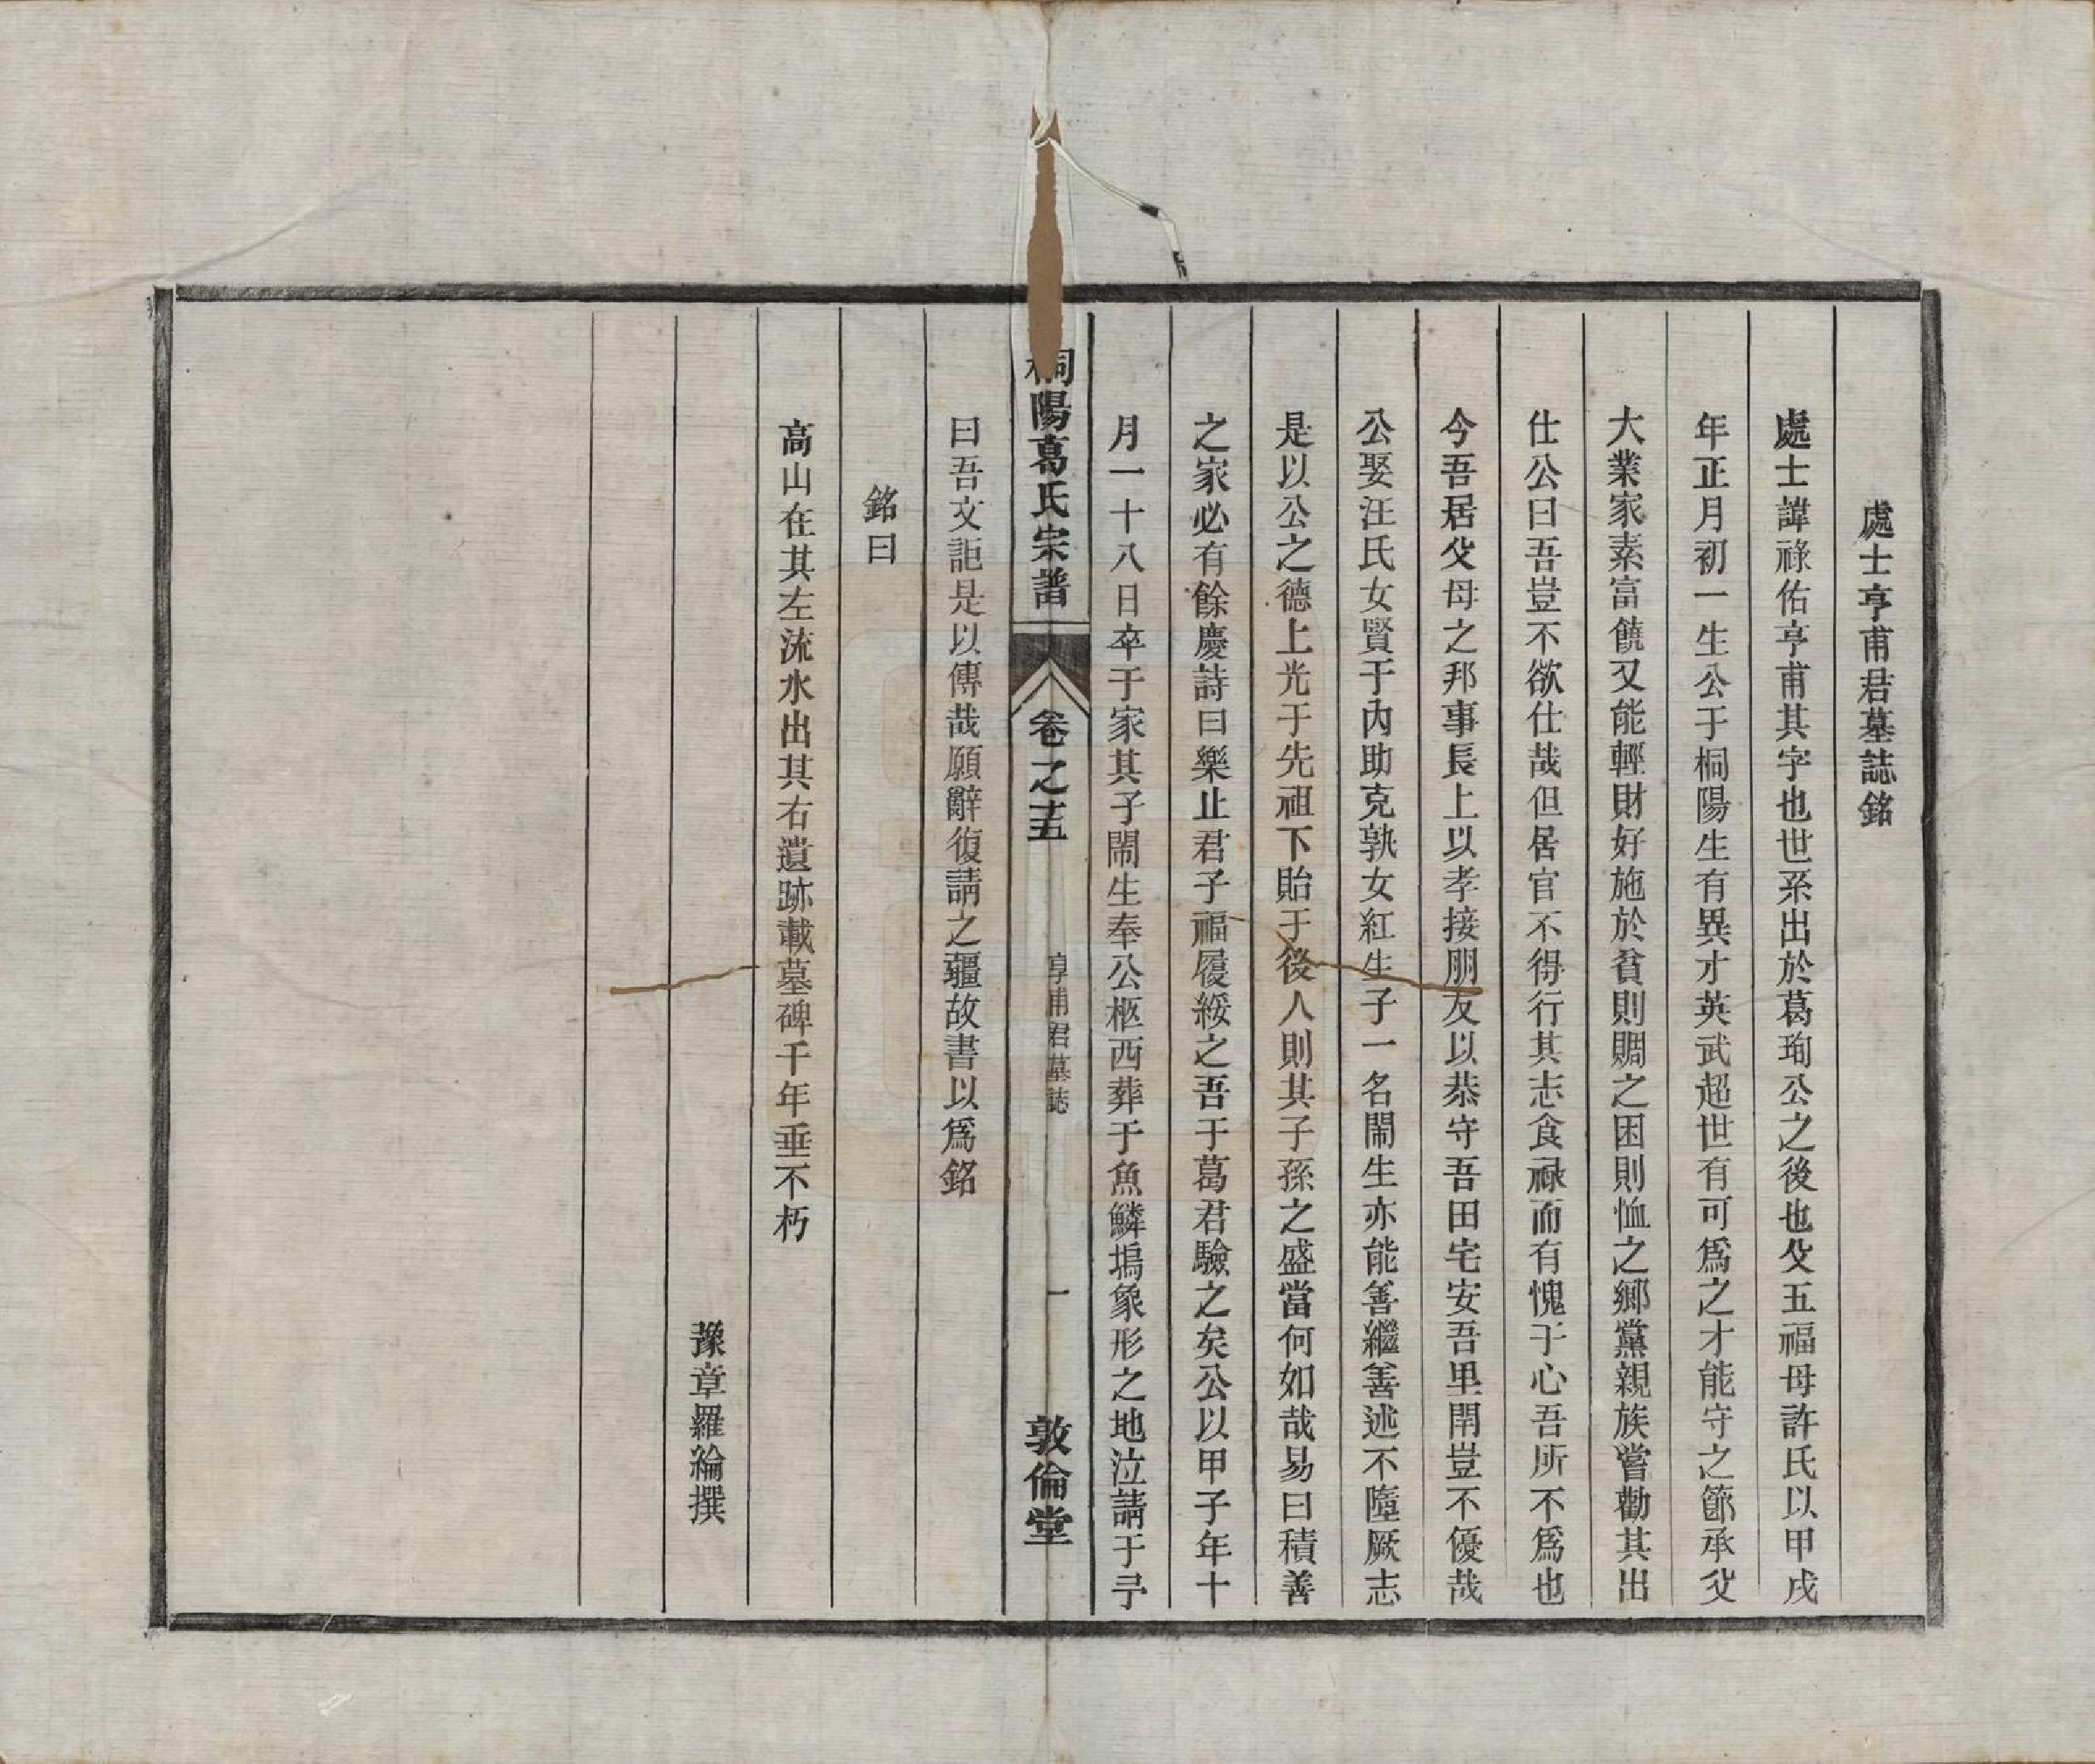 處士亨甫君墓誌銘
處士諱祿佑亨甫其字也世系出於葛珣公之後也父五福母許氏以甲戌
年正月初一生公于桐陽生有異才英武超世有可爲之才能守之節承父
大業家素富饒又能輕財好施於貧則賙之困則恤之鄉黨親族嘗勸其出
仕公曰吾豈不欲仕哉但居官不得行其志食祿而有愧于心吾所不爲也
今吾居父母之邦事長上以孝接朋友以恭守吾田宅安吾里閈豈不優哉
公娶汪氏女賢于內助克孰女紅生子一名閙生亦能善繼善述不墮厥志
是以公之德上光于先祖下貽于後人則其子孫之盛當何如哉易曰積善
之家必有餘慶詩曰樂止君子福履綏之吾于葛君驗之矣公以甲子年十
月一十八日卒于家其子閙生奉公柩西葬于魚鱗塢象形之地泣請于予
桐陽葛氏宗譜 卷之十五 亨甫君墓誌 一 敦倫堂
曰吾文詎是以傳哉願辭復請之疆故書以爲銘
銘曰
高山在其左流水出其右遺跡載墓碑千年垂不朽
豫章羅綸撰